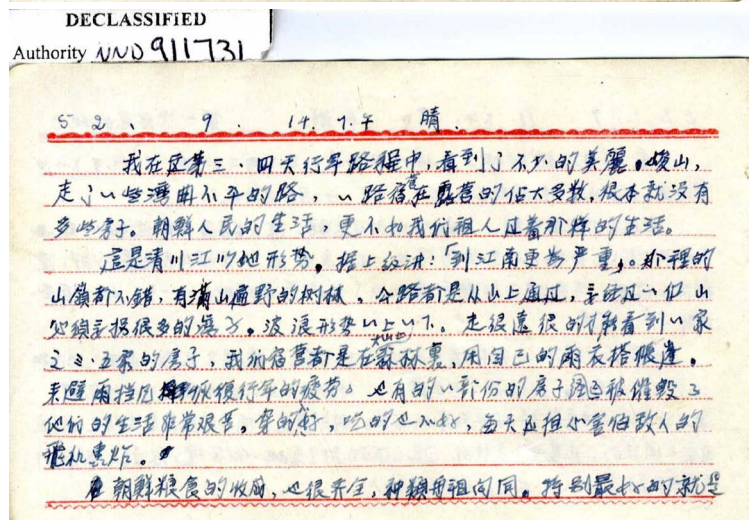 DECLASSIFIED
Authority NND 911731
52、9、14.下午 晴.
我在这第三、四天行军路程中,看到了不少的美麗。峻山,
走了一些湾曲不平的路,一路宿营在露营的佔大多数,根本就没有
多些房子。朝鲜人民的生活,更不如我们祖人过着那样的生活。
這是清川江以地形势。据上级讲:「到江南更为严重」。那裡的
山嶺都不错,有满山遍野的树林,公路都是从山上通过,经过一个山
很多的湾子。波浪形势一上一下。走很遠很的才能看到一家
五家的房子,我们宿营都是在森林裏,用自己的雨衣搭帳逢。
来避雨挡风恢復行军的疲劳。也有的一部份的房子因被催毁了
他们的生活非常艰苦。穿的好,吃的也不好,每天害怕敌人的
飛机轰炸。
在朝鲜粮食的收成,也很齐全,种類与祖国同。特别最好的就是